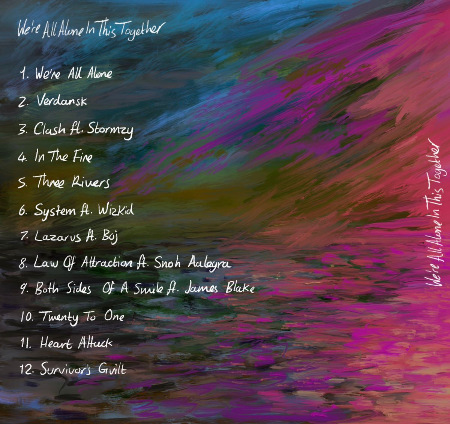 We're All Alone In This Together
1. We're All Alone
2. Verdansk
3. Clash ft. Stormzy
4. In The Fire
5. Three Rivers
6. System ft. Wizkid
7. Lazarus ft. Boj
8. Law Of Attraction ft. Snoh Aalegra
9. Both Sides Of A Smile ft. James Blake
10. Twenty To One
11. Heart Attack
12. Survivor's Guilt
We're All Alone In This Together